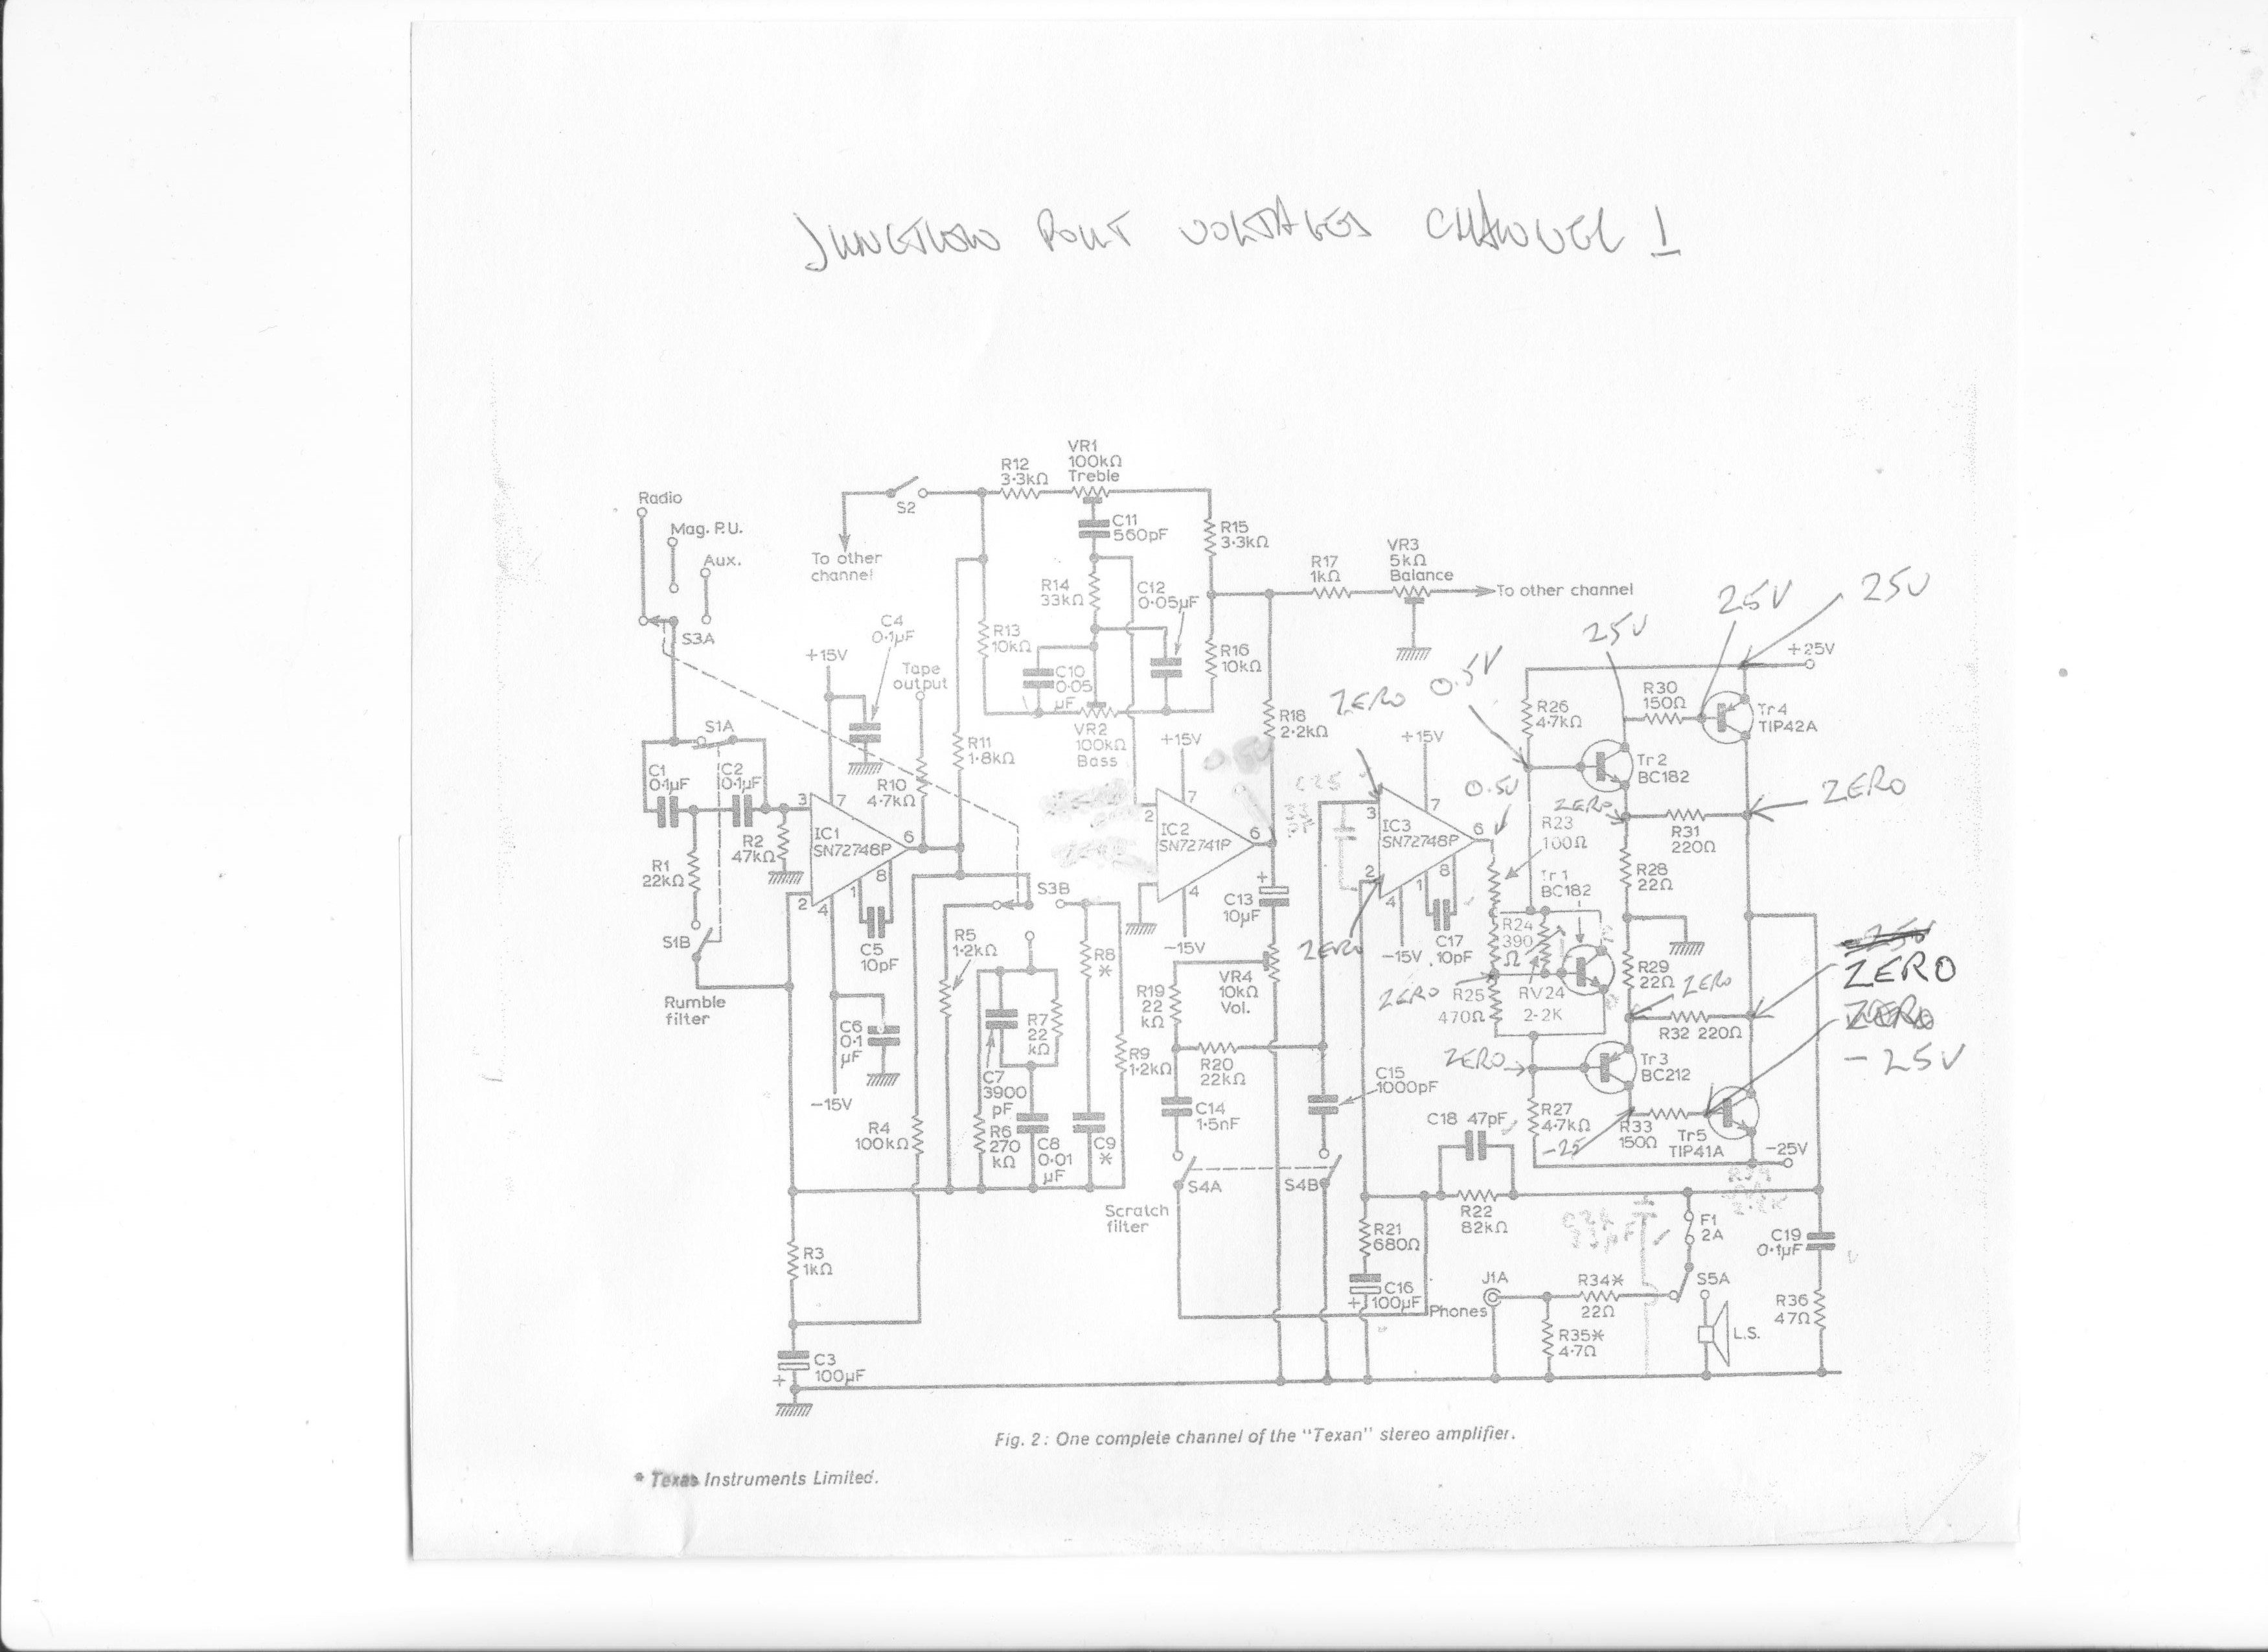 JUNCTION POINT VOLTAGES CHANNEL 1
Radio
Mag. P.U.
Aux.
S3A
S2
To other
channel
R12
3·3kΩ
VR1
100kΩ
Treble
C11
560pF
R14
33kΩ
C12
0·05µF
R15
3·3kΩ
R17
1kΩ
VR3
5kΩ
Balance
To other channel
25V
25V
25V
+25V
R13
10kΩ
C10
0·05
µF
R16
10kΩ
VR2
100kΩ
Bass
C4
0·1µF
+15V
Tape
output
R10
4·7kΩ
R11
1·8kΩ
R18
2·2kΩ
+15V
ZERO
0.5V
+15V
R26
4·7kΩ
R30
150Ω
Tr4
TIP42A
Tr2
BC182
S1A
C1
0·1µF
C2
0·1µF
R2
47kΩ
R1
22kΩ
3
7
IC1
SN72748P
6
2
4
1
8
C5
10pF
S1B
Rumble
filter
C6
0·1
µF
-15V
2
7
IC2
SN72741P
6
4
-15V
C13
10µF
+
VR4
10kΩ
Vol.
C25
3
7
IC3
SN72748P
6
2
4
1
8
-15V
C17
10pF
ZERO
0.5V
ZERO
R23
100Ω
R31
220Ω
ZERO
R28
22Ω
Tr1
BC182
R24
390
Ω
ZERO
R25
470Ω
RV24
2-2K
R29
22Ω
ZERO
R32 220Ω
-25V
ZERO
ZERO
-25V
ZERO
Tr3
BC212
R27
4·7kΩ
-25
R33
150Ω
Tr5
TIP41A
-25V
S3B
R5
1·2kΩ
R8
*
R7
22
kΩ
R9
1·2kΩ
C7
3900
pF
R6
270
kΩ
C8
0·01
µF
C9
*
R4
100kΩ
R19
22
kΩ
R20
22kΩ
C14
1·5nF
C15
1000pF
S4A
S4B
Scratch
filter
C18 47pF
R22
82kΩ
R21
680Ω
C16
100µF
+
Phones
J1A
R34*
22Ω
R35*
4·7Ω
F1
2A
S5A
L.S.
C19
0·1µF
R36
47Ω
R3
1kΩ
C3
100µF
+
Fig. 2: One complete channel of the "Texan" stereo amplifier.
* Texas Instruments Limited.